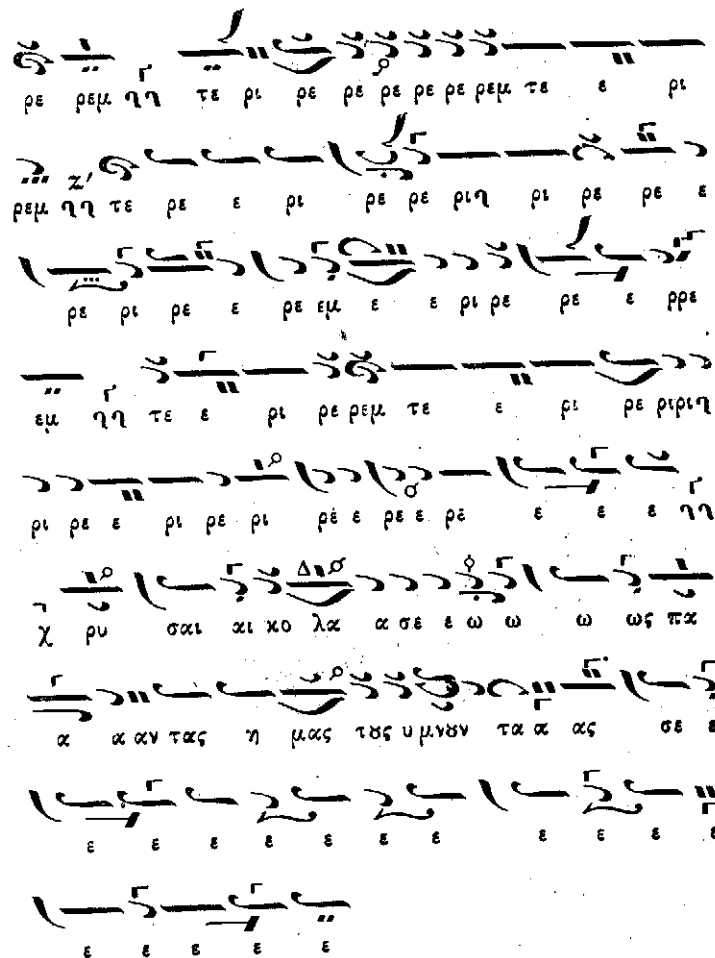 ρε ρεμ ηη τε ρι ρε ρε ρε ρε ρε ρεμ τε ε ρι
ρεμ ηη τε ρε ε ρι ρε ρε ριη ρι ρε ρε ε
ρε ρι ρε ε ρε εμ ε ε ρι ρε ρε ε ρρε
εμ ηη τε ε ρι ρε ρεμ τε ε ρι ρε ριριη
ρι ρε ε ρι ρε ρι ρέ ε ρε ε ρε ε ε ε ηη
χ ρυ σαι αι κο λα α σε ε ω ω ω ως πα
α α αν τας η μας τȣς υ μνȣν τα α ας σε ε
ε ε ε ε ε ε ε ε ε ε ε
ε ε ε ε ε